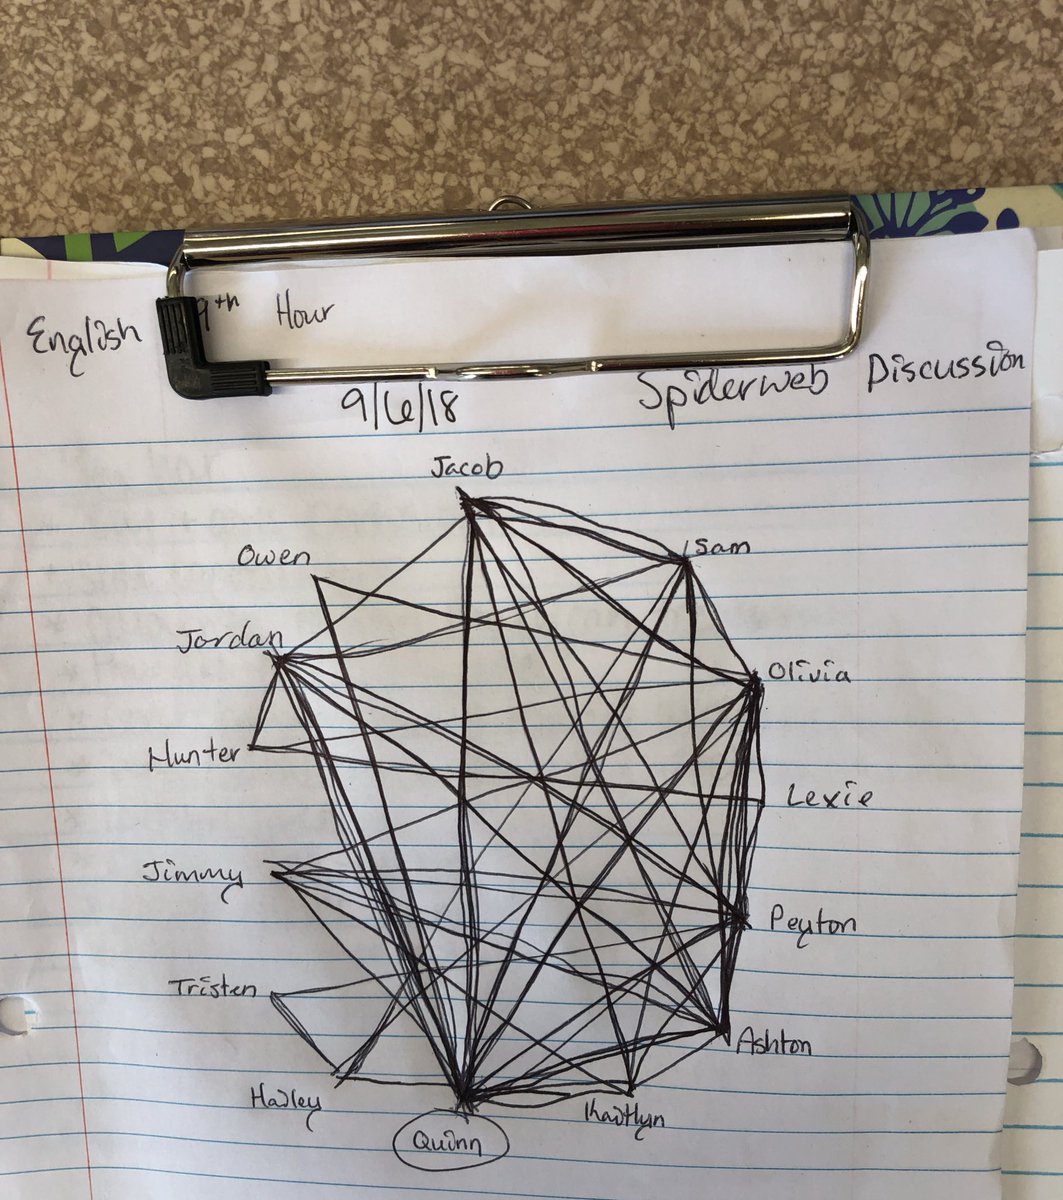 English 9th Hour
9/6/18 Spiderweb Discussion
Jacob
Sam
Owen
Jordan
Olivia
Hunter
Lexie
Jimmy
Peyton
Tristen
Ashton
Hailey
Kaitlyn
Quinn